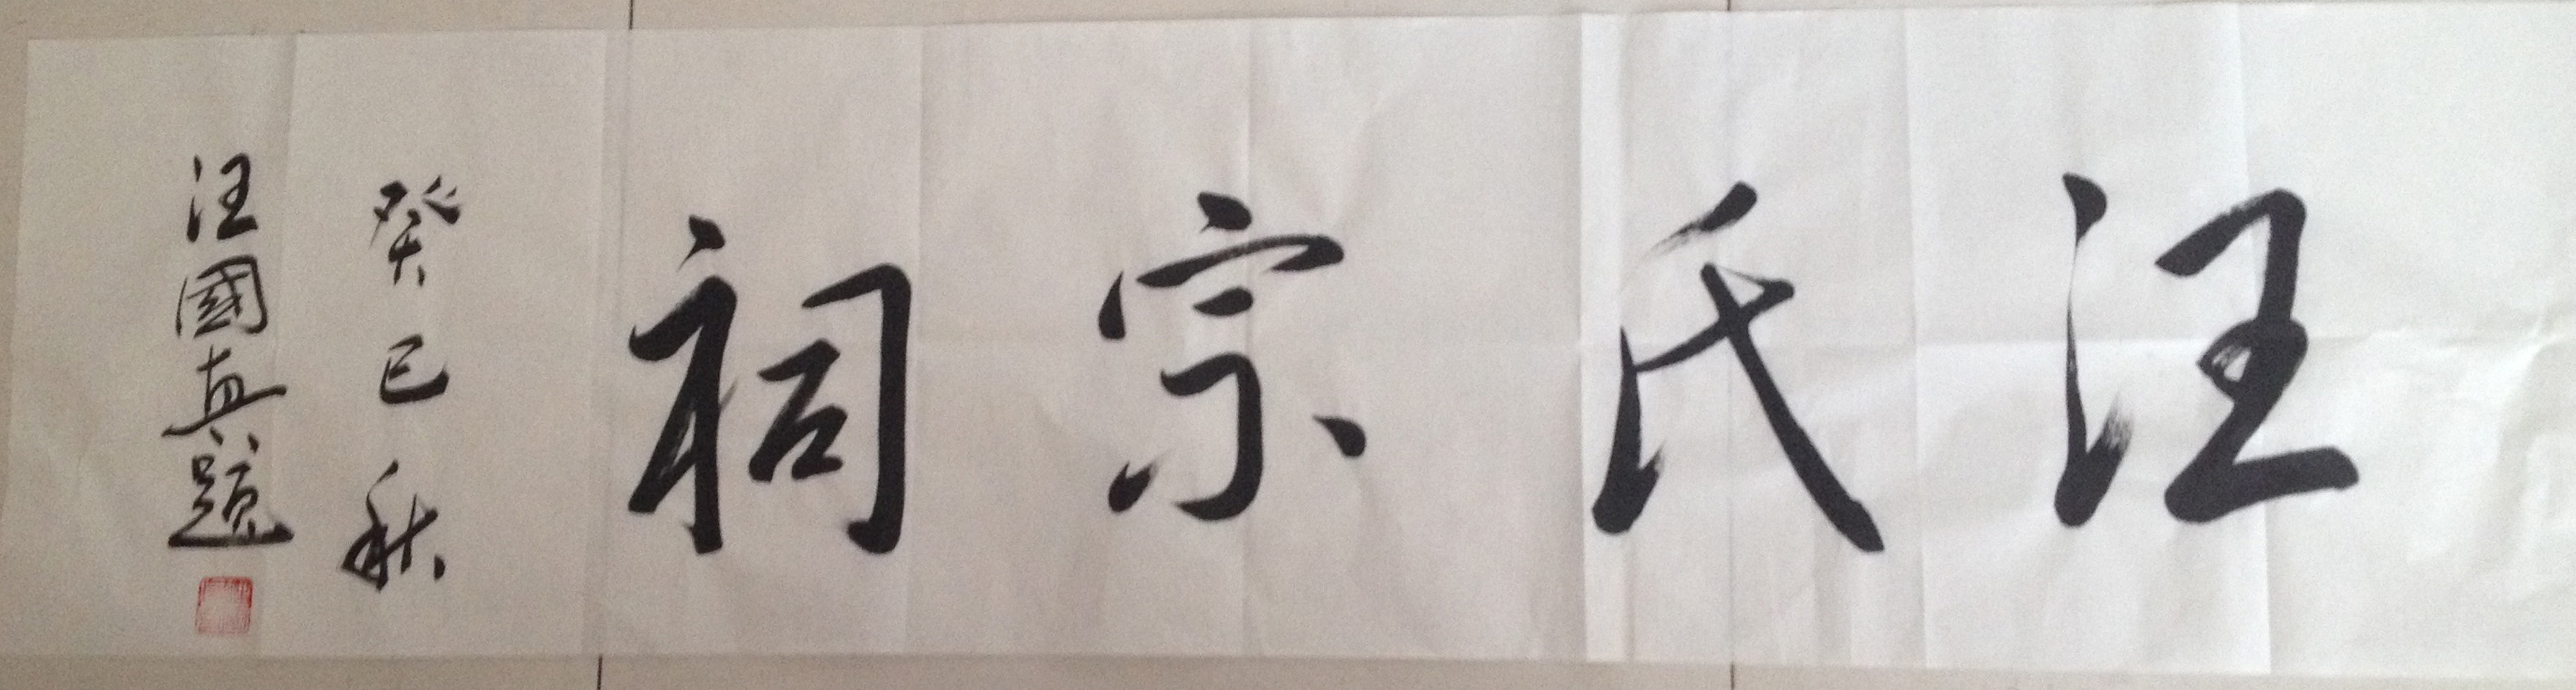 汪氏宗祠
癸巳秋
汪國真題